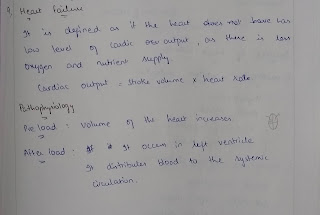 9. Heart failure
It is defined as if the heart does not have has
low level of cardic output, as there is less
oxygen and nutrient supply.
Cardiac output = stroke volume x heart rate
Pathophysiology
Pre load : volume of the heart increases.
After load - It occurs in left ventricle
It distributes blood to the systemic
circulation.